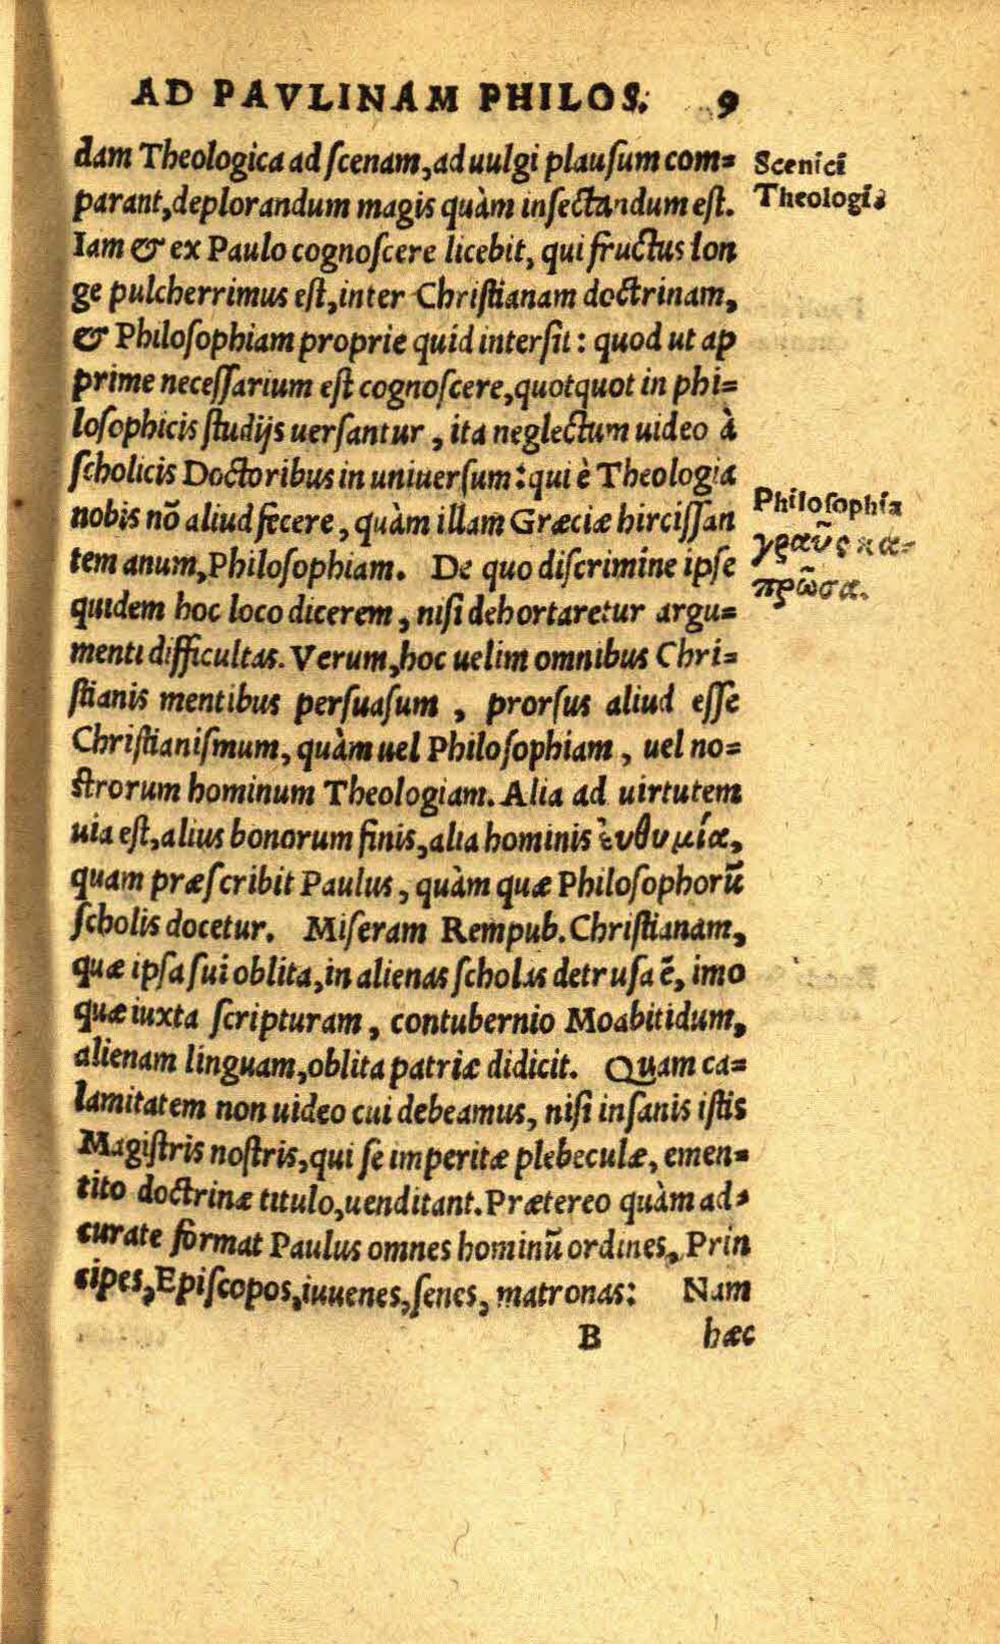 AD PAVLINAM PHILOS. 9
dam Theologica ad ſcenam, ad uulgi plauſum com=
parant, deplorandum magis quàm inſectandum eſt.
Scenici
Theologia
Iam & ex Paulo cognoſcere licebit, qui fructus lon
ge pulcherrimus eſt, inter Chriſtianam doctrinam,
& Philoſophiam proprie quid interſit: quod ut ap
prime neceſſarium eſt cognoſcere, quotquot in phi=
loſophicis ſtudijs uerſantur, ita neglectum uideo à
ſcholicis Doctoribus in uniuerſum: qui è Theologia
nobis nõ aliud fecere, quàm illam Græciæ hirciſſan
tem anum, Philoſophiam. De quo diſcrimine ipſe
Philoſophia
γραῦς κα=
πρῶσα.
quidem hoc loco dicerem, niſi dehortaretur argu=
menti difficultas. Verum, hoc uelim omnibus Chri=
ſtianis mentibus perſuaſum, prorſus aliud eſſe
Chriſtianiſmum, quàm uel Philoſophiam, uel no=
ſtrorum hominum Theologiam. Alia ad uirtutem
uia eſt, alius bonorum finis, alia hominis ἐυθυμία,
quam præſcribit Paulus, quàm quæ Philoſophorũ
ſcholis docetur. Miſeram Rempub. Chriſtianam,
quæ ipſa ſui oblita, in alienas ſcholas detruſa ẽ, imo
quæ iuxta ſcripturam, contubernio Moabitidum,
alienam linguam, oblita patriæ didicit. Quam ca=
lamitatem non uideo cui debeamus, niſi inſanis iſtis
Magiſtris noſtris, qui ſe imperitæ plebeculæ, emen=
tito doctrinæ titulo, uenditant. Prætereo quàm ad=
curate format Paulus omnes hominũ ordines, Prin
cipes, Epiſcopos, iuuenes, ſenes, matronas: Nam
B hæc